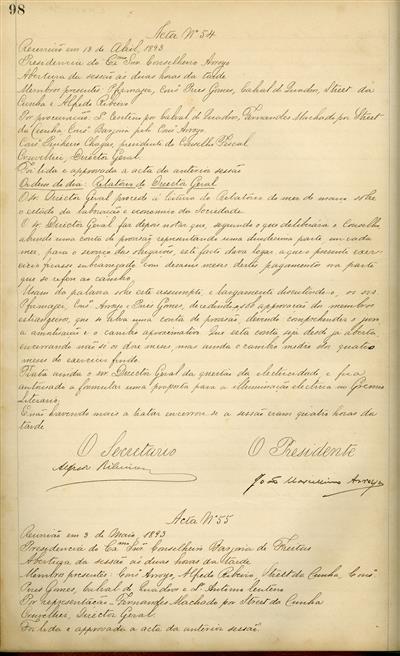 98
Acta Nº 54
Reunião em 18 de Abril, 1893
Presidencia do Exmo Snr. Conselheiro Arroyo
Abertura da sessão ás duas horas da tarde
Membros presentes Pfirmager, Consº Pires Gomes, Cabral de Quadros, Street da
Cunha e Alfredo Ribeiro
Por procuração: Sº Centeno por Cabral de Quadros, Fernandes Machado por Street
da Cunha, Consº Barjona pelo Consº Arroyo.
Consº Pinheiro Chagas, presidente do Conselho Fiscal
Cruvellier, Director Geral.
Foi lida e approvada a acta da anterior sessão
Ordem do dia: Relatorio do Director Geral
O sr. Director Geral procede á leitura do Relatorio do mez de março sobre
o estado da laboração e economia da Sociedade
O sr. Director Geral faz depois notar que, segundo o que deliberára o Conselho,
abrindo uma conta de provisão representando uma duodecima parte em cada
mez, para o serviço das obrigações, este facto dava logar a que o presente exer-
cicio ficasse sobrecarregado com dezeseis mezes deste pagamento na parte
que se refere ao cambio.
Usam da palavra sobre este assumpto, e largamente discutindo-o, os srs
Pfirmager, Consº Arroyo e Pires Gomes, decidindo-se, sob approvação dos membros
estrangeiros, que se abra uma conta de provisão, devendo comprehender o juro
a amortisação e o cambio aproximativo. Que esta conta seja desde já aberta
encerrando não só os doze mezes mas ainda o cambio medio dos quatro
mezes do exercicio findo.
Trata ainda o snr. Director Geral da questão da electricidade e fica
auctorisado a formular uma proposta para a illuminação electrica no Gremio
Litterario.
E não havendo mais a tratar encerrou-se a sessão eram quatro horas da
tarde
O Secretario O Presidente
Alfredo Ribeiro João Marcellino Arroyo
Acta Nº 55
Reunião em 3 de Maio, 1893
Presidencia do Exmo Snr Conselheiro Barjona de Freitas
Abertura da sessão ás duas horas da tarde
Membros presentes: Consº Arroyo, Alfredo Ribeiro, Street da Cunha, Consº
Pires Gomes, Cabral de Quadros e Sº Antonio Centeno
Por representação - Fernandes Machado por Street da Cunha
Cruvellier, Director Geral.
Foi lida e approvada a acta da anterior sessão.